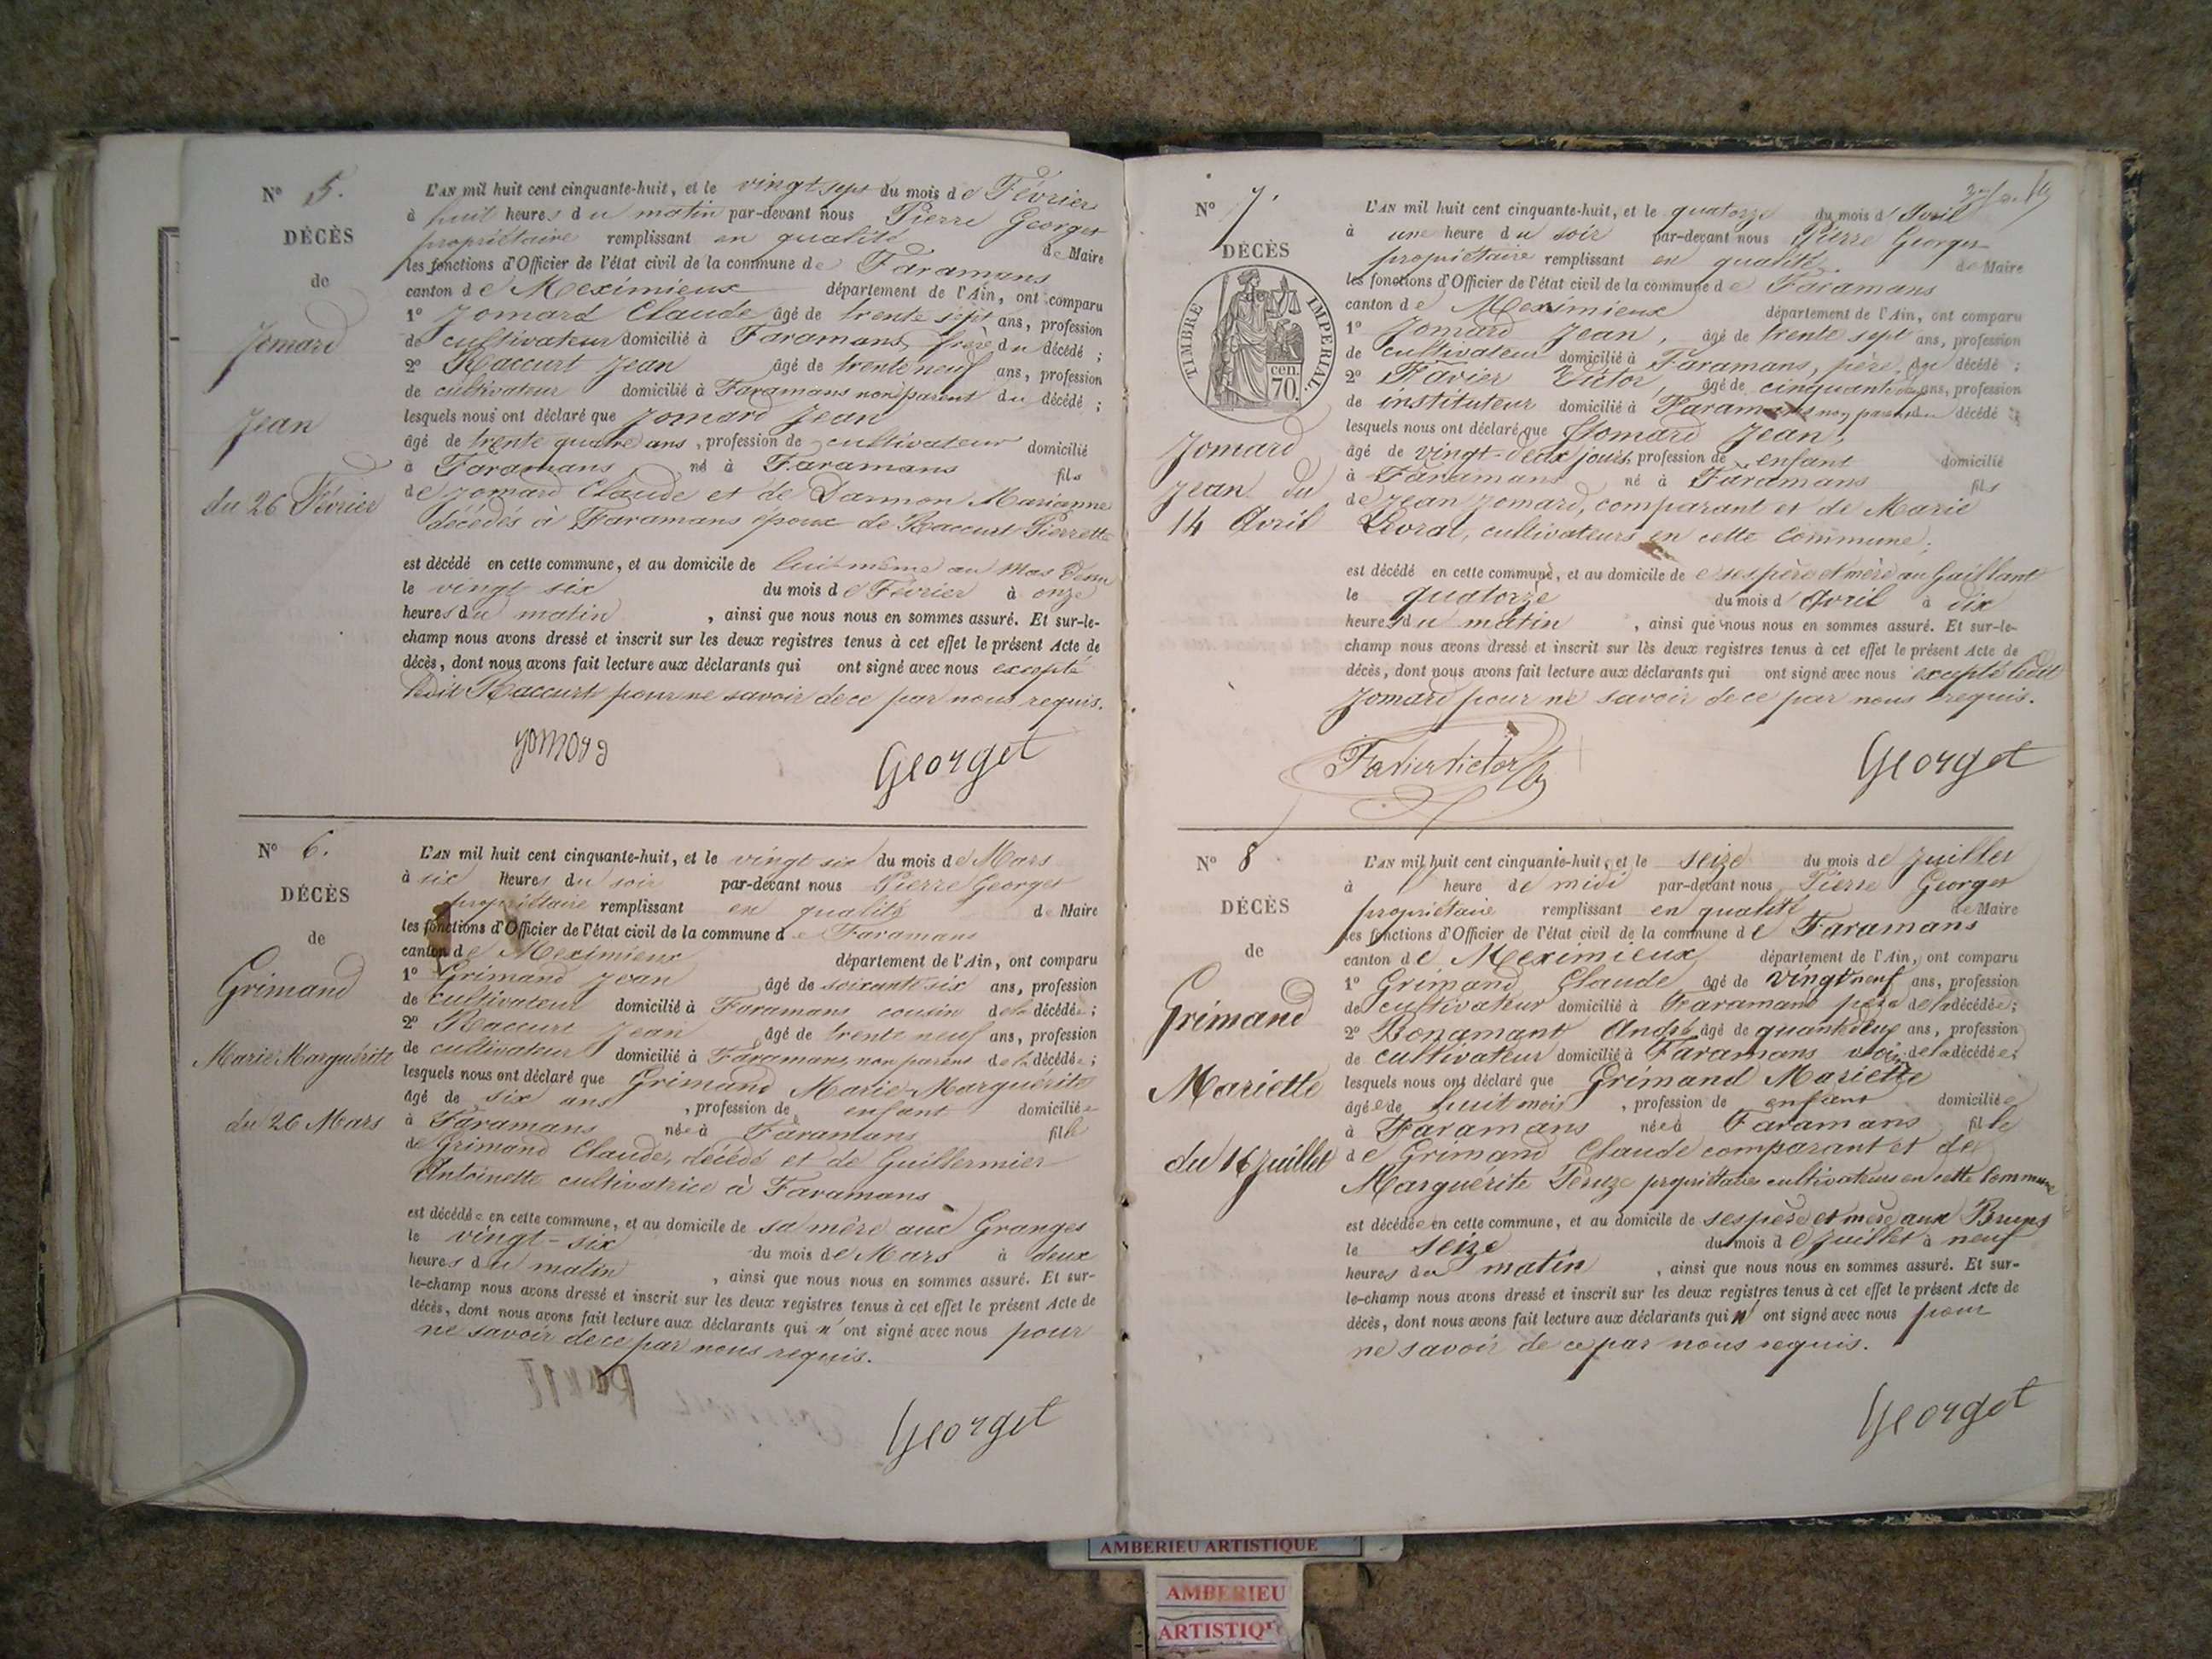 N° 5.
DÉCÈS
de
Jomard
Jean
du 26 Février
L'AN mil huit cent cinquante-huit, et le vingt sept du mois de Février
à huit heures du matin par-devant nous Pierre Georget
propriétaire remplissant en qualité de Maire
les fonctions d'Officier de l'état civil de la commune de Faramans
canton de Meximieux département de l'Ain, ont comparu
1° Jomard Claude âgé de trente sept ans, profession
de cultivateur domicilié à Faramans, frère du décédé ;
2° Raccurt Jean âgé de trente neuf ans, profession
de cultivateur domicilié à Faramans non parent du décédé ;
lesquels nous ont déclaré que Jomard Jean
âgé de trente quatre ans, profession de cultivateur domicilié
à Faramans, né à Faramans fils
de Jomard Claude et de Dannon Marianne
décédés à Faramans époux de Raccurt Pierrette
est décédé en cette commune, et au domicile de lui-même au Mas
le vingt six du mois de Février à onze
heures du matin, ainsi que nous nous en sommes assuré. Et sur-le-
champ nous avons dressé et inscrit sur les deux registres tenus à cet effet le présent Acte de
décès, dont nous avons fait lecture aux déclarants qui ont signé avec nous excepté
ledit Raccurt pour ne savoir de ce par nous requis.
Jomard
Georget
N° 6.
DÉCÈS
de
Grimand
Marie Marguérite
du 26 Mars
L'AN mil huit cent cinquante-huit, et le vingt six du mois de Mars
à six heures du soir par-devant nous Pierre Georget
propriétaire remplissant en qualité de Maire
les fonctions d'Officier de l'état civil de la commune de Faramans
canton de Meximieux département de l'Ain, ont comparu
1° Grimand Jean âgé de soixante six ans, profession
de cultivateur domicilié à Faramans cousin de la décédée ;
2° Raccurt Jean âgé de trente neuf ans, profession
de cultivateur domicilié à Faramans, non parent de la décédée ;
lesquels nous ont déclaré que Grimand Marie-Marguérite
âgé de six ans, profession de enfant domiciliée
à Faramans née à Faramans fille
de Grimand Claude, décédé et de Guillermier
Antoinette cultivatrice à Faramans
est décédée en cette commune, et au domicile de sa mère aux Granges
le vingt-six du mois de Mars à deux
heures du matin, ainsi que nous nous en sommes assuré. Et sur-
le-champ nous avons dressé et inscrit sur les deux registres tenus à cet effet le présent Acte de
décès, dont nous avons fait lecture aux déclarants qui n'ont signé avec nous pour
ne savoir de ce par nous requis.
Georget
N° 7.
DÉCÈS
TIMBRE IMPÉRIAL
70 cen.
Jomard
Jean du
14 Avril
L'AN mil huit cent cinquante-huit, et le quatorze du mois d'Avril
à une heure du soir par-devant nous Pierre Georget
propriétaire remplissant en qualité de Maire
les fonctions d'Officier de l'état civil de la commune de Faramans
canton de Meximieux département de l'Ain, ont comparu
1° Jomard Jean, âgé de trente sept ans, profession
de cultivateur domicilié à Faramans, père du décédé ;
2° Favier Victor, âgé de ans, profession
de instituteur domicilié à Faramans non parent du décédé ;
lesquels nous ont déclaré que Jomard Jean,
âgé de vingt-deux jours, profession de enfant domicilié
à Faramans né à Faramans fils
de Jean Jomard, comparant et de Marie
cultivateurs en cette commune ;
est décédé en cette commune, et au domicile de ses père et mère au Gaillant
le quatorze du mois d'Avril à dix
heures du matin, ainsi que nous nous en sommes assuré. Et sur-le-
champ nous avons dressé et inscrit sur les deux registres tenus à cet effet le présent Acte de
décès, dont nous avons fait lecture aux déclarants qui ont signé avec nous excepté ledit
Jomard pour ne savoir de ce par nous requis.
Favier Victor
Georget
N° 8
DÉCÈS
de
Grimand
Mariette
du 16 Juillet
L'AN mil huit cent cinquante-huit, et le seize du mois de Juillet
à heure de midi par-devant nous Pierre Georget
propriétaire remplissant en qualité de Maire
les fonctions d'Officier de l'état civil de la commune de Faramans
canton de Meximieux département de l'Ain, ont comparu
1° Grimand Claude âgé de vingt neuf ans, profession
de cultivateur domicilié à Faramans père de la décédée ;
2° Bonamant André âgé de quante deux ans, profession
de cultivateur domicilié à Faramans voisin de la décédée ;
lesquels nous ont déclaré que Grimand Mariette
âgée de huit mois, profession de enfant domiciliée
à Faramans née à Faramans fille
de Grimand Claude comparant et de
Marguérite Peruze propriétaires cultivateurs en cette Commune
est décédée en cette commune, et au domicile de ses père et mère aux Bruns
le seize du mois de Juillet à neuf
heures du matin, ainsi que nous nous en sommes assuré. Et sur-
le-champ nous avons dressé et inscrit sur les deux registres tenus à cet effet le présent Acte de
décès, dont nous avons fait lecture aux déclarants qui n'ont signé avec nous pour
ne savoir de ce par nous requis.
Georget
AMBERIEU ARTISTIQUE
AMBERIEU
ARTISTIQ